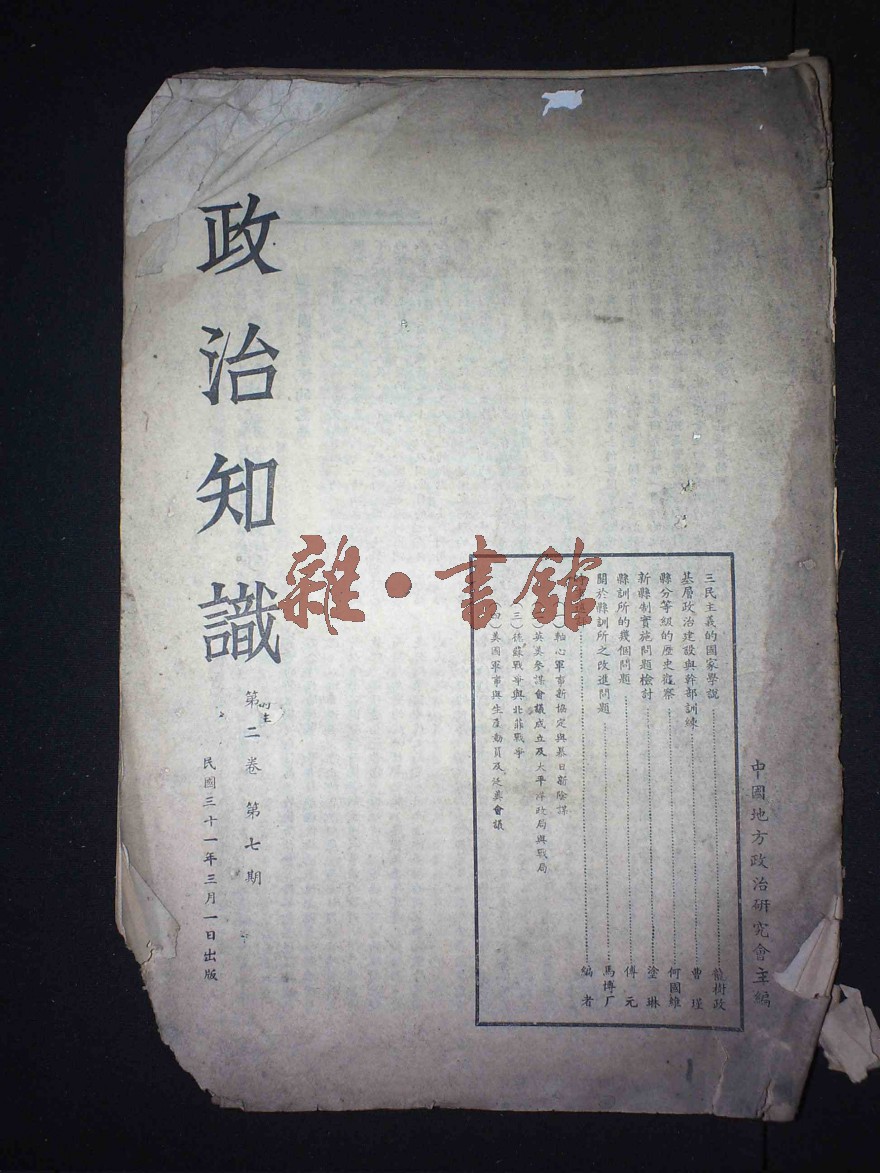 中國地方政治研究會主編
三民主義的國家學說 龍樹政
基層政治建設與幹部訓練 曹瑾
縣分等級的歷史觀察 何國維
新縣制實施問題檢討 塗琳
縣訓所的幾個問題 傅元
關於縣訓所之改進問題 馬博厂
編者
軸心軍事新協定與暴日新陰謀
英美參謀會議成立及太平洋政局與戰局
(三)德蘇戰爭與北菲戰爭
(四)美國軍事與生產動員及泛美會議
政治知識
第二卷第七期
民國三十一年三月一日出版
雜·書館